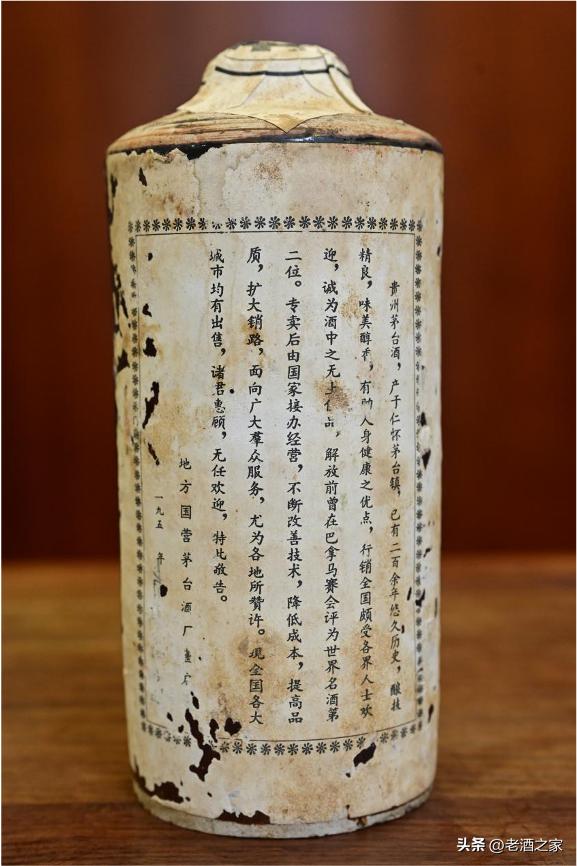 贵州茅台酒，产于仁怀茅台镇，已有二百余年悠久历史，酿技
精良，味美醇香，有助人身健康之优点，行销全国颇受各界人士欢
迎，诚为酒中之无上佳品，解放前曾在巴拿马赛会评为世界名酒第
二位。专卖后由国家接办经营，不断改善技术，降低成本，提高品
质，扩大销路，面向广大羣众服务，尤为各地所赞许。现全国各大
城市均有出售，诸君惠顾，无任欢迎，特此敬告。
地方国营茅台酒厂
一九五 年
头条 @老酒之家